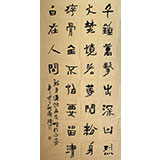 千錘萬擊出深山烈
火焚燒若等閒粉身
碎骨全不怕要留清
白在人間